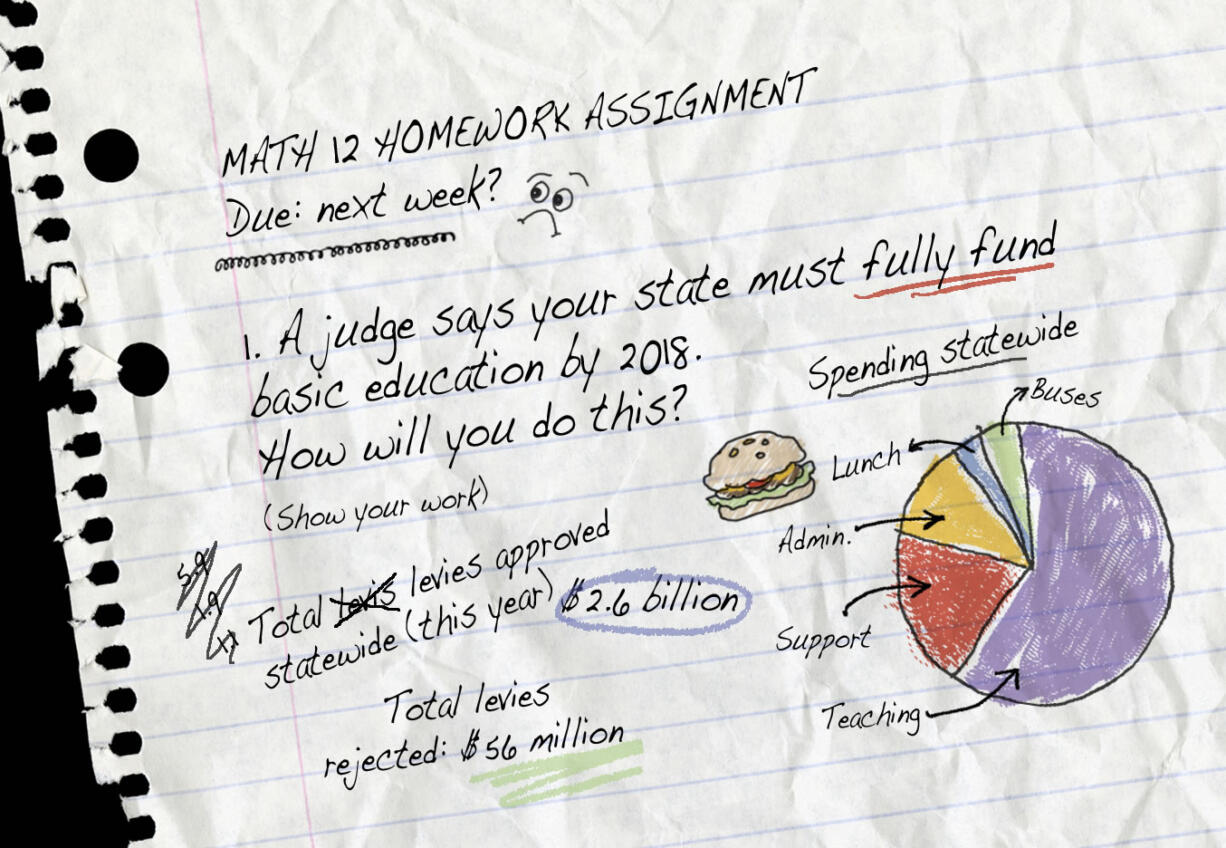 MATH 12 HOMEWORK ASSIGNMENT
Due: next week?
1. A judge says your state must fully fund
basic education by 2018.
How will you do this?
(Show your work)
Total levis levies approved
statewide (this year) $2.6 billion
Total levies
rejected: $56 million
Spending statewide
Buses
Lunch
Admin.
Support
Teaching